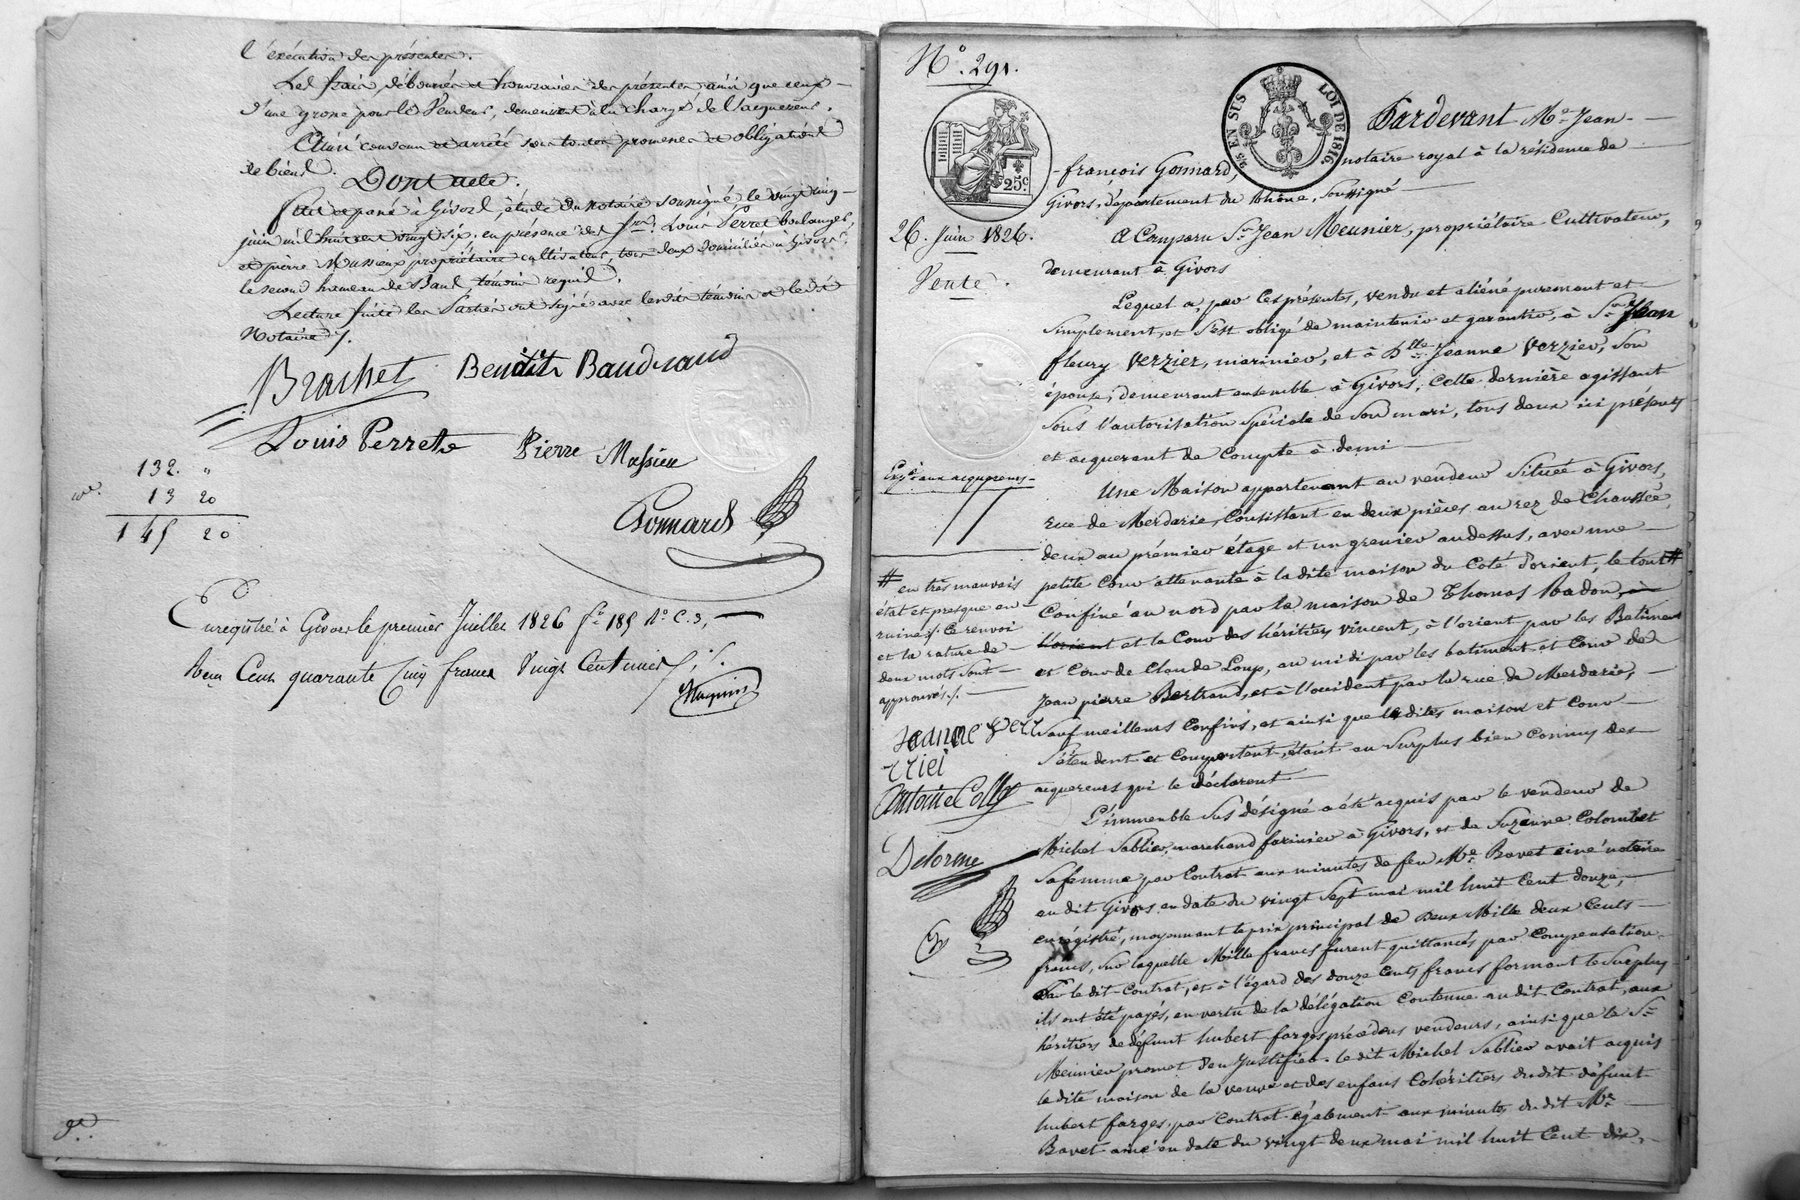 l'exécution des présentes.
Les frais déboursés et honoraires des présentes ainsi que ceux
d'une grosse pour le Vendeur, demeurent à la charge de l'acquereur.
Ainsi convenu et arrêté sous toutes promesses et obligations
de biens.
Dont acte.
fait et passé à Givors, étude du notaire soussigné le vingt cinq
juin mil huit cent vingt six, en présence des Srs Louis Perret boulanger,
et pierre Massieux propriétaire cultivateur, tous deux domiciliés à Givors,
le second hameau de Bans, témoins requis.
Lecture faite les Parties ont signé avec lesdits témoins et ledit
Notaire /.
Brachet Benoit Baudrand
Louis Perret Pierre Massieux
132. "
13 20
145 20
Gonnard
Enregistré à Givors le premier Juillet 1826 fo 185 Ro C. 3,
Reçu Cent quarante Cinq francs Vingt Centimes
No. 291.
EN SUS LOI DE 1816
25c
26. Juin 1826.
Vente.
Pardevant Me Jean
françois Gonnard, notaire royal à la résidence de
Givors, département du Rhône, soussigné
A Comparu Sr Jean Meunier, propriétaire Cultivateur,
demeurant à Givors
Lequel a, par ces présentes, vendu et aliéné purement et
Simplement, et S'est obligé de maintenir et garantir, à Sr Jean
fleury Verzier, marinier, et à Dlle Jeanne Verzier, son
épouse, demeurant ensemble à Givors, cette dernière agissant
Sous l'autorisation Spéciale de Son mari, tous deux ici présents
et acquerant de Compte à demi
Expé aux acquereurs
Une Maison appartenant au vendeur Située à Givors,
rue de Merdarie, Consistant en deux pièces au rez de Chaussée,
deux au prémier étage et un grenier audessus, avec une
petite Cour attenante à la dite maison du Coté d'orient, le tout #
Confiné au nord par la maison de Thomas Radon, à
l'orient et la Cour des héritiers Vincent, à l'orient par les Batiment
et Cour de Claude Loup, au midi par les batiment et Cour de
Jean pierre Bertrand, et à l'occident par la rue de Merdarie,
Sauf meilleurs Confins, et ainsi que lesdites maison et Cour
S'étendent et Comportent, étant au Surplus bien Connus des
acquereurs qui le déclarent
# en très mauvais
état et presque en
ruines/. Ce renvoi
et la rature de
deux mots Sont
approuvés /.
Jeanne Verr
rziei
Antoine Colly
Delorme
L'immeuble Sus désigné a été acquis par le vendeur de
Michel Sablier, marchand farinier à Givors, et de Suzanne Colombet
Sa femme par Contrat aux minutes de feu Me Bavet ainé notaire
au dit Givors en date du vingt Sept mai mil huit Cent douze,
enrégistré, moyennant le prix principal de Deux Mille deux Cents
francs, Sur laquelle Mille francs furent quittancés par Compensation
Par le dit Contrat, et à l'égard des douze Cents francs formant le Surplus
ils ont été payés, en vertu de la délégation Contenue au dit Contrat, aux
héritiers de défunt hubert farges précédens vendeurs, ainsi que le Sr
Meunier promet d'en Justifier. Le dit Michel Sablier avait acquis
la dite maison de la veuve et des enfans Cohéritiers dudit défunt
hubert farges par Contrat également aux minutes du dit Me
Bavet ainé en date du vingt deux mai mil huit Cent dix,